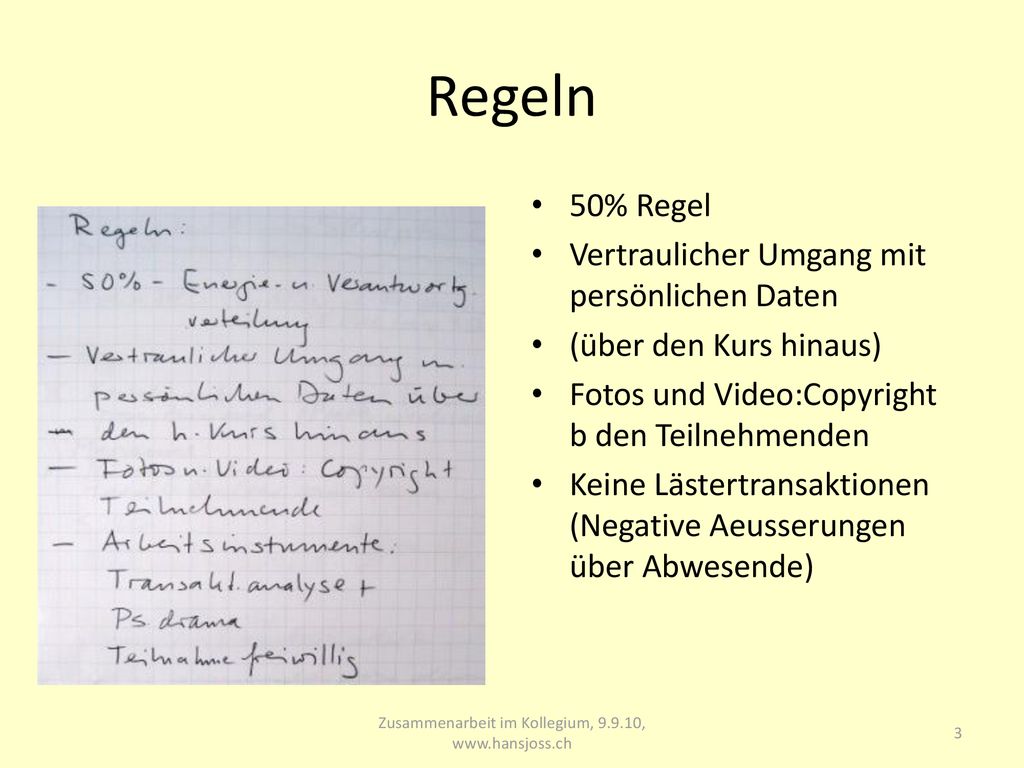 Regeln
Regeln:
- 50% - Energie- u. Verantwortg.
verteilung
- Vertraulicher Umgang m.
persönlichen Daten über
- den h. Kurs hinaus
- Fotos u. Video: Copyright
Teilnehmende
- Arbeitsinstrumente:
Transakt.analyse +
Ps.drama
Teilnahme freiwillig
• 50% Regel
• Vertraulicher Umgang mit
persönlichen Daten
• (über den Kurs hinaus)
• Fotos und Video:Copyright
b den Teilnehmenden
• Keine Lästertransaktionen
(Negative Aeusserungen
über Abwesende)
Zusammenarbeit im Kollegium, 9.9.10,
www.hansjoss.ch
3